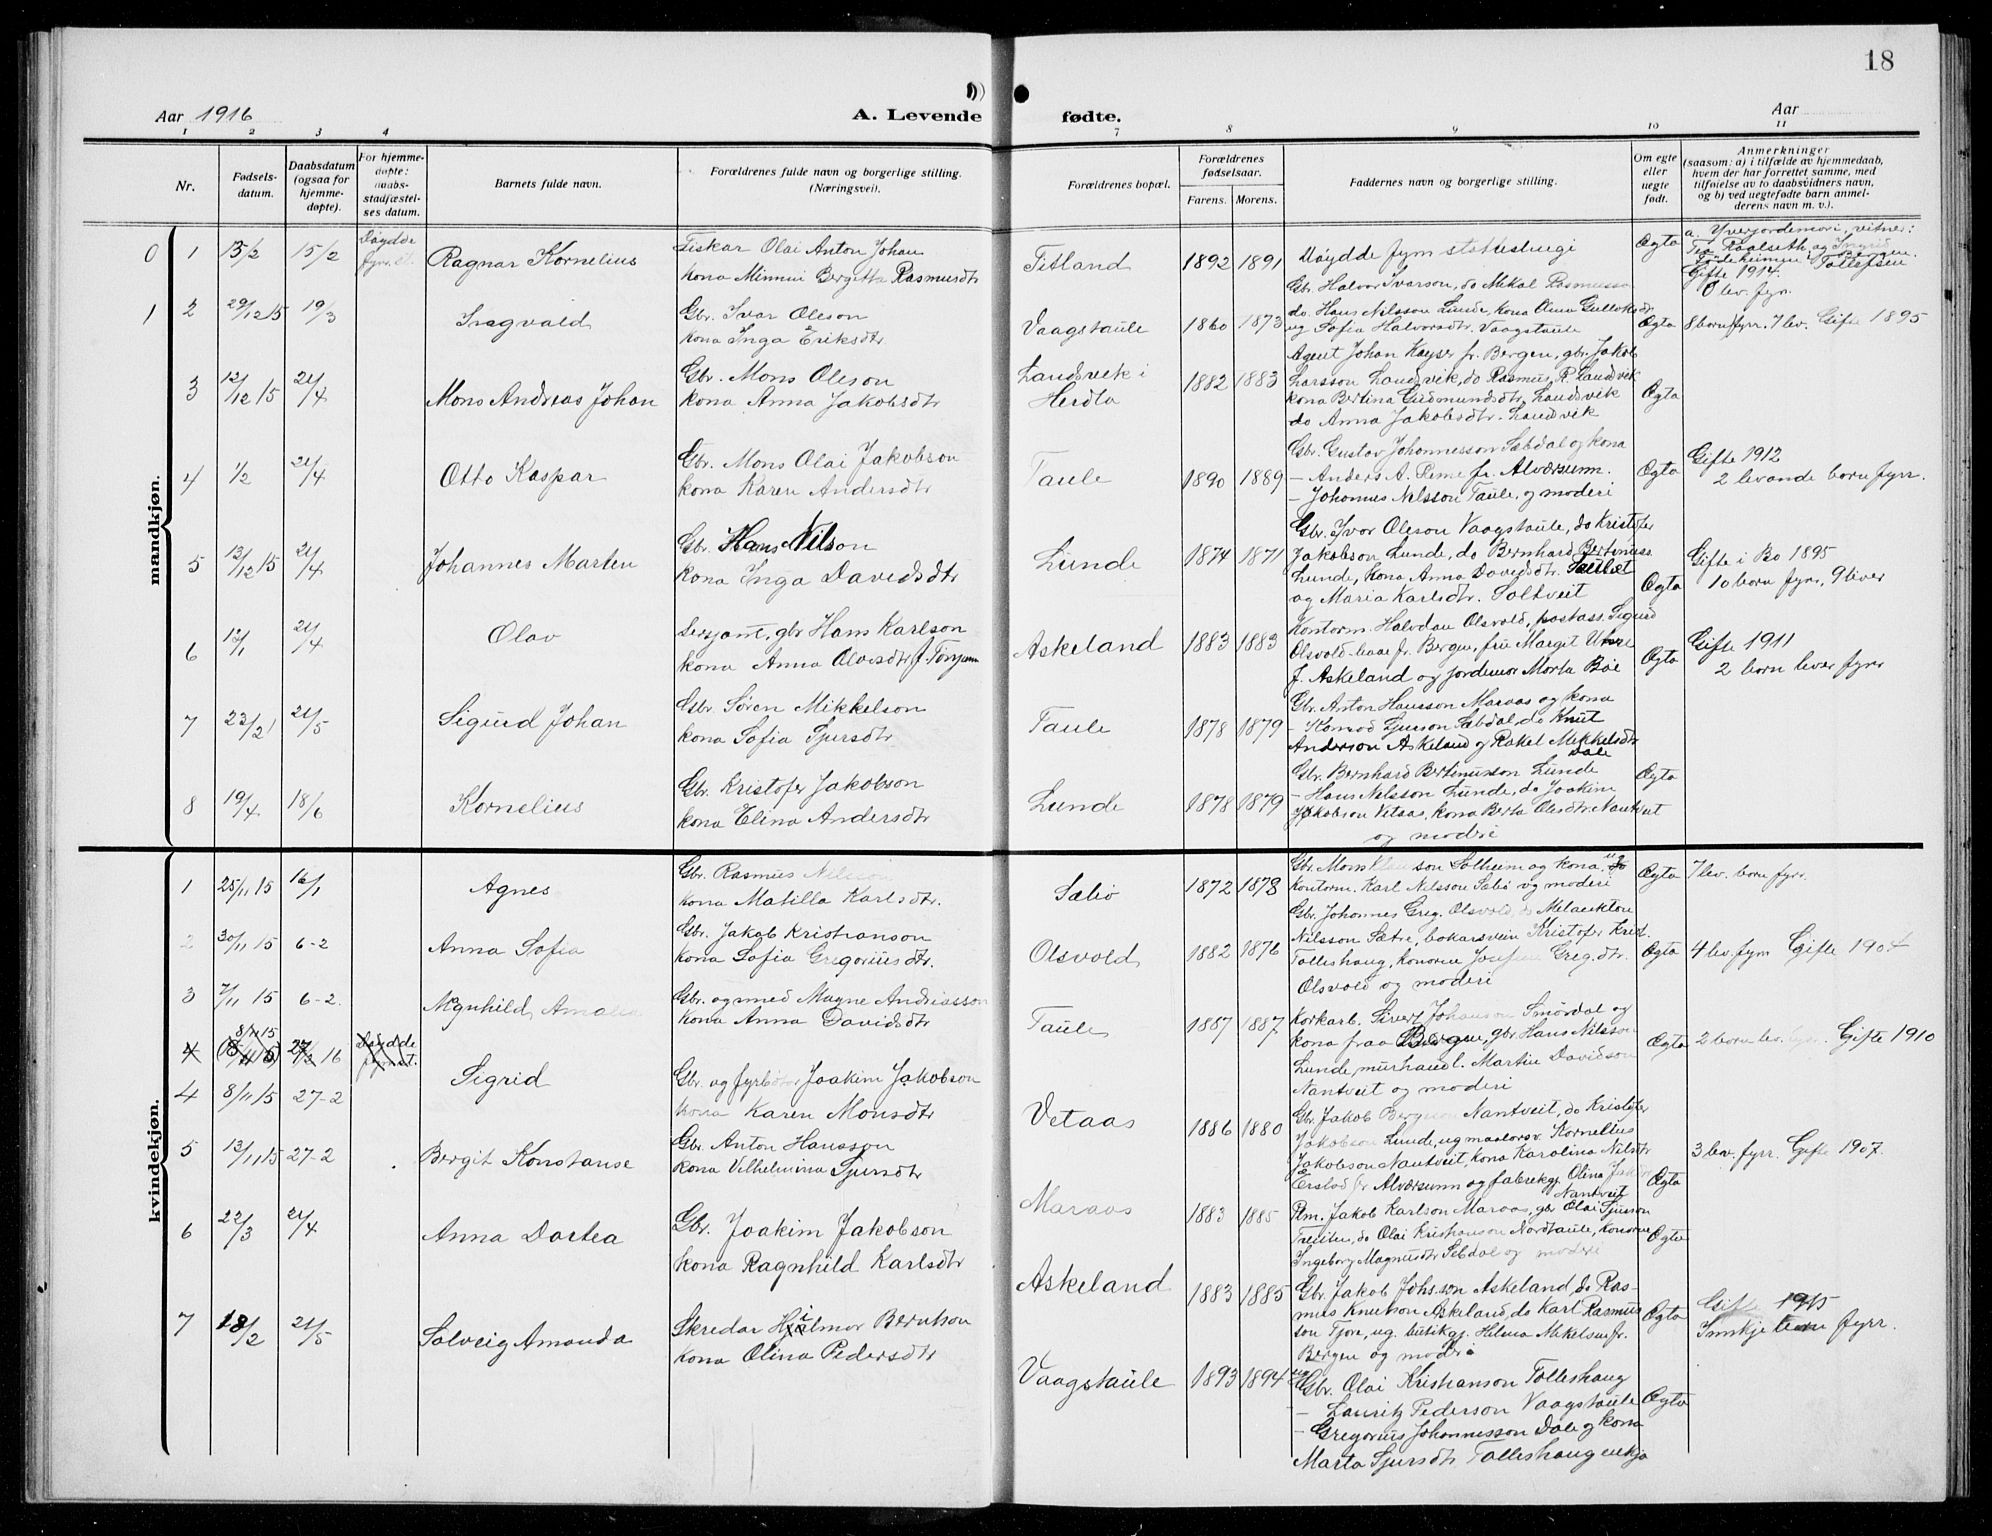 18
Aar 1916
A. Levende
fødte.
Aar
1 2 3 4
7 8 9 10 11
Nr.
Fødsels-
datum.
Daabsdatum
(ogsaa for
hjemme-
døpte).
For hjemme-
døpte:
daabs-
stadfæstel-
ses datum.
Barnets fulde navn.
Forældrenes fulde navn og borgerlige stilling.
(Næringsvei).
Forældrenes bopæl.
Forældrenes
fødselsaar.
Farens. Morens.
Faddernes navn og borgerlige stilling.
Om egte
eller
uegte
født.
Anmerkninger
(saasom: a) i tilfælde av hjemmedaab,
hvem der har forrettet samme, med
tilføielse av to daabsvidners navn,
og b) ved uegtefødte barn anmel-
derens navn m. v.).
mandkjøn.
0 1 13/2 15/2 Døydde Ragnar Kornelius
Fiskar Olai Anton Johan
kona Minnni Bergitta Rasmusdtr
Titland 1892 1891 Døydde fyrr stattestingi Ægta
Gifte 1914.
0 lev. fyrr.
1 2 29/12 15 19/3 Ingvald
Gbr. Ivar Oleson
kona Inga Eriksdtr
Vaagstaule 1860 1873
Gbr. Halvor Ivarson, do Mikal Rasmusson
do. Hans Nilsson Lunde, kona Olina Gulleksdtr
ug Sofia Halvorsdtr. Vaagstaule
Ægta 8 born fyrr. 7 lev. Gifte 1895
3 12/12 15 24/4 Mons Andreas Johan
Gbr. Mons Oleson
kona Anna Jakobsdtr
Landsvik i
Herdla 1882 1883
Agent Johan Kayser fr. Bergen, gbr. Jakob
Larsson Landsvik, do Rasmus R. Landsvik
kona Bertina Gudmundsdtr. Landsvik
do Anna Jakobsdtr. Landsvik
Ægta
4 1/2 24/4 Otto Kaspar
Gbr. Mons Olai Jakobson
kona Karen Andersdtr
Taule 1890 1889
Gbr. Gustav Johannesson Sæbdal og kona
- Anders A. Reme fr. Alværsunn.
- Johannes Nilsson Taule, og moderi
Ægta
Gifte 1912
2 levande born fyrr.
5 13/12 15 24/4 Johannes Marten
Gbr. Hans Nilson
kona Inga Davidsdtr
Lunde 1874 1871
Gbr. Ivor Oleson Vaagstaule, do Kristofer
Jakobson Lunde, do Bernhard Bertinuss.
Lunde, kona Anna Davidsdtr.
og Maria Karlsdtr. Soltveit
Ægta
Gifte i Bo 1895
10 born fyrr, 9 liver
6 12/1 24/4 Olav
Sersjant, gbr Hans Karlson
kona Anna Olvesdtr f.
Askeland 1883 1883
Kontorm. Halvdan Olsvold, postass. Sigurd
Olsvold baae fr. Bergen, frü Margit
f. Askeland og jordemor Marta Bøe
Ægta
Gifte 1911
2 born lever fyrr
7 22/2 21/5 Sigurd Johan
Gbr. Søren Mikkelson
kona Sofia Sjursdtr
Taule 1878 1879
Gbr. Anton Hansson Maraas og kona
- Konrad Sjurson Sæbdal, do Knut
Anderson Askeland og Rakel Mikkelsdtr
Dale
Ægta
8 19/4 18/6 Kornelius
Gbr. Kristofer Jakobson
kona Elina Andersdtr
Lunde 1878 1879
Gbr. Bernhard Bertinusson Lunde
- Hans Nilsson Lunde, do Joakim
Jakobson Vetaas, kona Berta Olesdtr. Nautveit
og moderi
Ægta
kvindekjøn.
1 25/11 15 16/1 Agnes
Gbr. Rasmus Nilsson
kona Matilla Karlsdtr.
Sæbø 1872 1878
Gbr. Mons son Solheim og kona
Kontorm. Karl Nilsson Sæbø og moderi
Ægta 7 lev. born fyrr.
2 30/11 15 6-2 Anna Sofia
Gbr. Jakob Kristianson
kona Sofia Gregoriusdtr.
Olsvold 1882 1876
Gbr. Johannes Greg. Olsvold, do Melankton
Nilsson Sætre, bakarsvein Kristofer Krist.
Tolleshaug, konorne Josefine Greg.dtr.
Olsvold og moderi
Ægta 4 lev. fyrr Gifte 1904
3 7/11 15 6-2. Magnhild Amalia
Gbr. og smed Magne Andreasson
kona Anna Davidsdtr
Taule 1887 1887
Korkarb. Sivert Johanson Smørdal og
kona fraa Bergen, gbr Hans Nilsson
Lunde, murhandl. Martin Davidson
Nautveit og moderi
Ægta 2 born lev. fyrr. Gifte 1910
4 8/11 15 27/2 16 Døydde
4 8/11 15 27-2 Sigrid
Gbr. og fyrbøtar Joakim Jakobson
kona Karen Monsdtr
Vetaas 1886 1880
Gbr. Jakob Bergeson Nautveit, do Kristofer
Jakobson Lunde, ug maalarsv. Kornelius
Jakobson Nautveit, kona Karolina Nilsdtr
Erstad fr Alværsunn og fabrikgj. Olina
Nautveit
Ægta
3 lev. fyrr. Gifte 1907.
5 13/11 15 27-2 Bergit Konstanse
Gbr. Anton Hansson
kona Vilhelmina Sjursdtr
Maraas 1883 1885
Pm. Jakob Karlson Maraas, gbr Olai Sjurson
Treiten, do Olai Kristianson Nordtaule, konorne
Ingeborg Magnusdtr Sebdal og moderi
Ægta
6 22/3 24/4 Anna Dortea
Gbr. Joakim Jakobson
kona Ragnhild Karlsdtr
Askeland 1883 1885
Gbr. Jakob Johs.son Askeland, do Ras-
mus Knutson Askeland, do Karl Rasmus
son Tjore, ug. butikgj. Helena Mikelson fr.
Bergen og moderi
Ægta
Gifte 1915
Innkje born fyrr.
7 18/2 21/5 Solveig Amanda
Skredar Hilmar Berntson
kona Olina Pedersdtr
Vaagstaule 1893 1894
Gbr. Olai Kristianson Tolleshaug
- Lauritz Pederson Vaagstaule
- Gregorius Johannesson Dale og kona
Marta Sjursdtr Tolleshaug enkja
Ægta